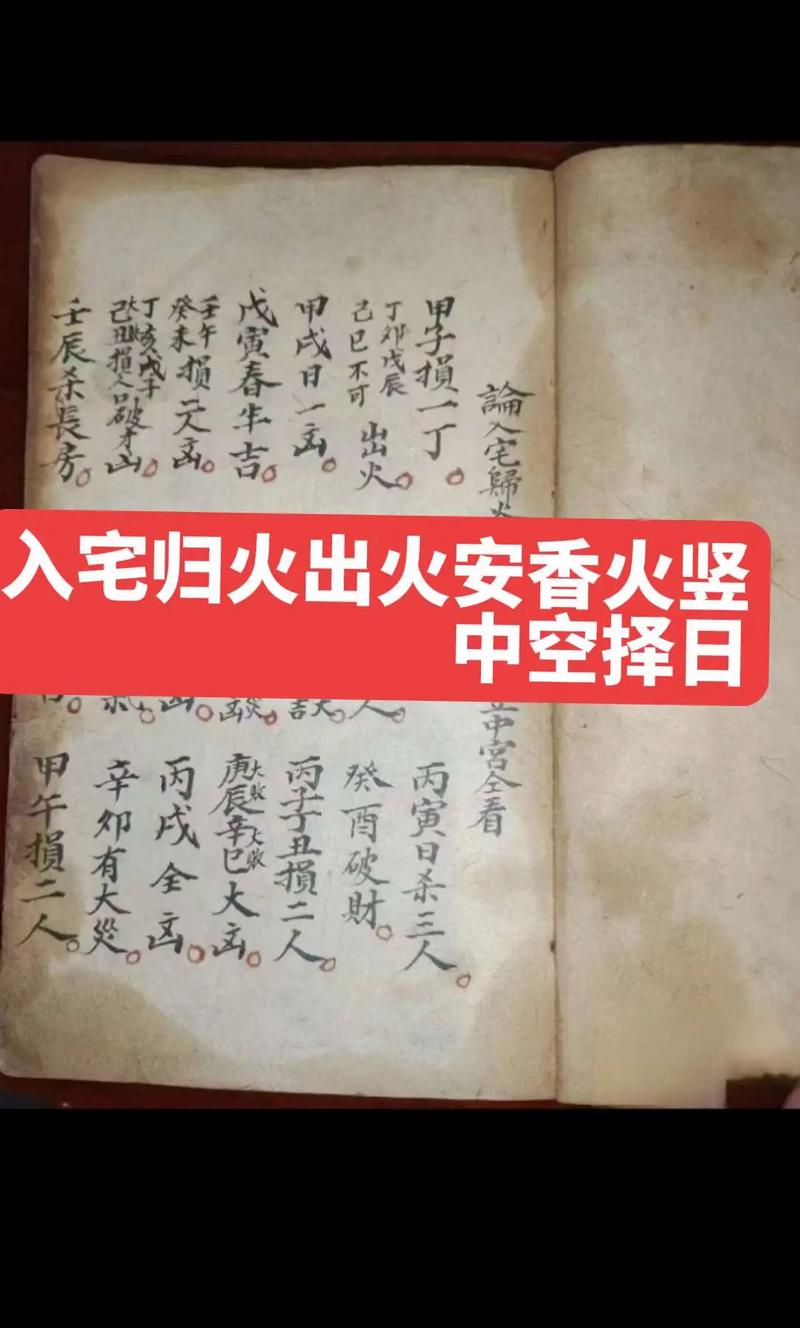 入宅归火出火安香火竖
中空择日
論入宅歸火
中宮全看
甲子損一丁
丁卯戊辰
己巳不可
出火
甲戌日一凶
戊寅春半吉
壬午
癸未
損二人凶
丁亥戊子
己丑損人口破才凶
壬辰杀長房
人
凶
丙寅日杀三人
癸酉破財
丙子丁丑損二人
庚辰大敗辛巳大敗大凶
丙戌全凶
辛卯有大災
甲午損二人